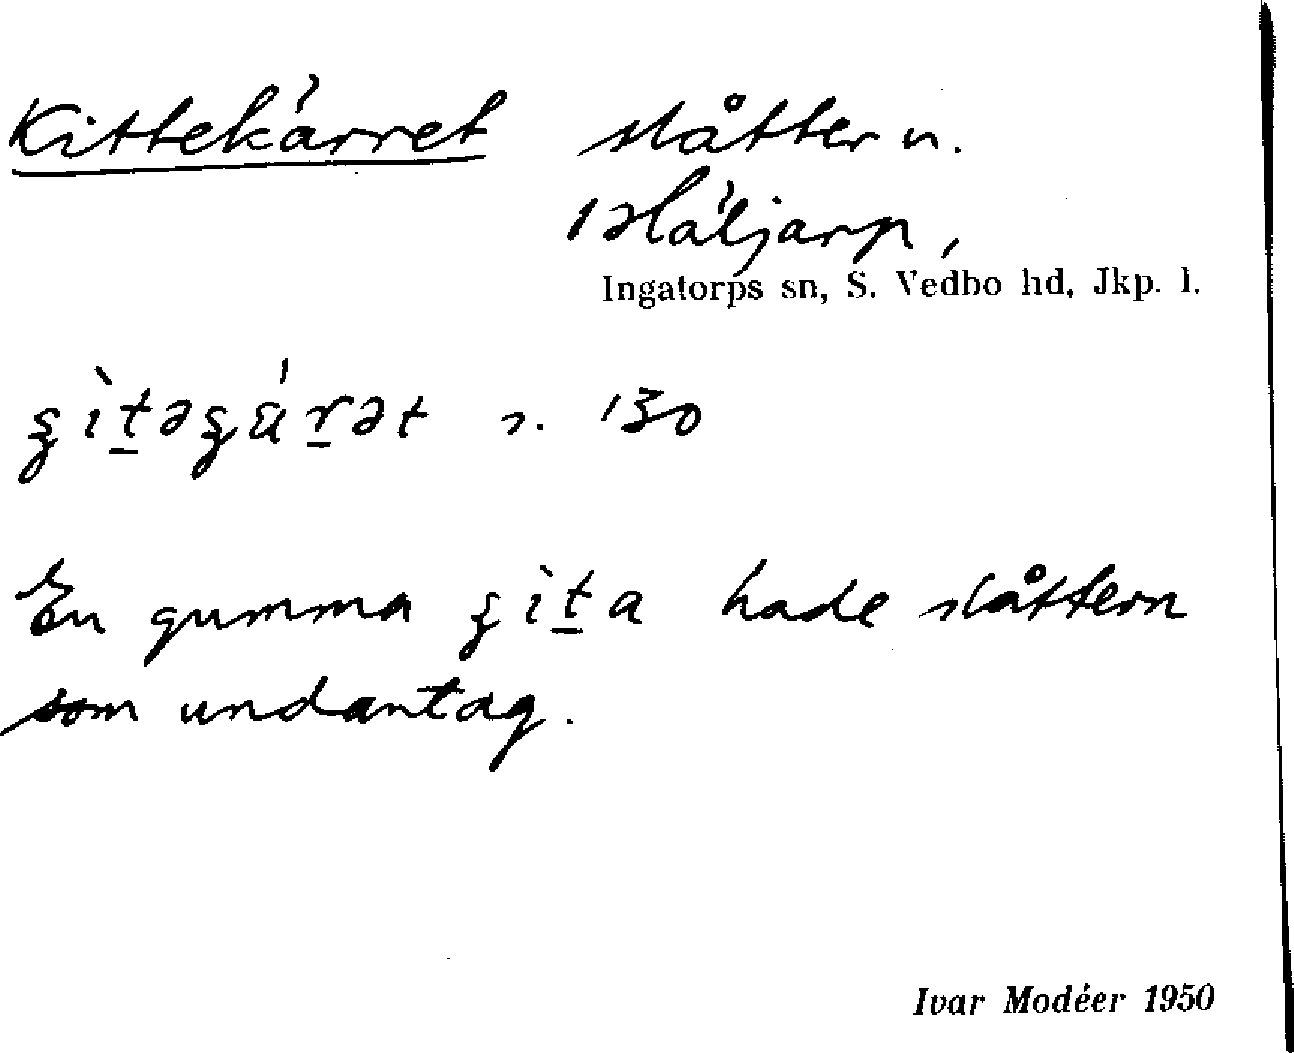 Kittekärret slåttern.
1 Häljarp,
Ingatorps sn, S. Vedbo hd, Jkp. l.
130
En gumma hade slåttern
som undantag.
Ivar Modéer 1950